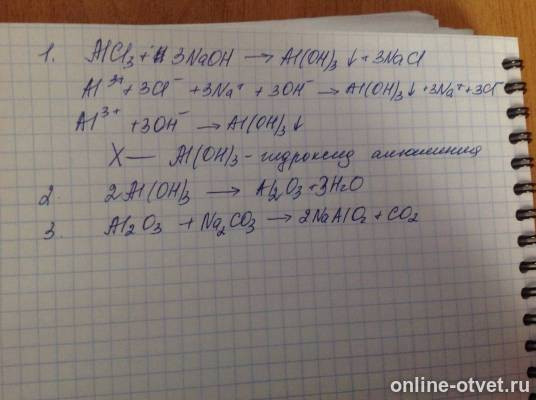 1. AlCl₃ + 3NaOH → Al(OH)₃↓ + 3NaCl
Al³⁺ + 3Cl⁻ + 3Na⁺ + 3OH⁻ → Al(OH)₃↓ + 3Na⁺ + 3Cl⁻
Al³⁺ + 3OH⁻ → Al(OH)₃↓
X — Al(OH)₃ - гидроксид алюминия
2. 2Al(OH)₃ → Al₂O₃ + 3H₂O
3. Al₂O₃ + Na₂CO₃ → 2NaAlO₂ + CO₂
online-otvet.ru